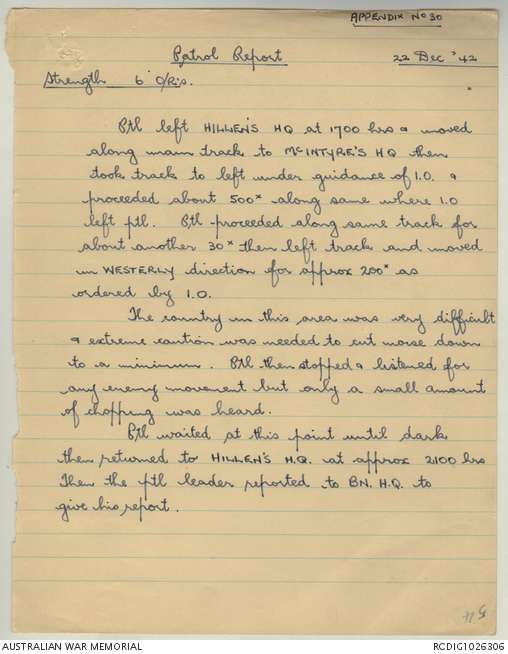 APPENDIX No 30
Patrol Report 22 Dec '42
Strength 6 O/R's.
Ptl left HILLEN'S HQ at 1700 hrs & moved
along main track to McINTYRE'S HQ then
took track to left under guidance of I.O. &
proceeded about 500ˣ along same where I.O
left ptl. Ptl proceeded along same track for
about another 30ˣ then left track and moved
in WESTERLY direction for approx 200ˣ as
ordered by I.O.
The country in this area was very difficult
& extreme caution was needed to cut noise down
to a minimum. Ptl then stopped & listened for
any enemy movement but only a small amount
of chopping was heard.
Ptl waited at this point until dark
then returned to HILLEN'S H.Q. at approx 2100 hrs
Then the ptl leader reported to BN. H.Q. to
give his report.
AUSTRALIAN WAR MEMORIAL RCDIG1026306